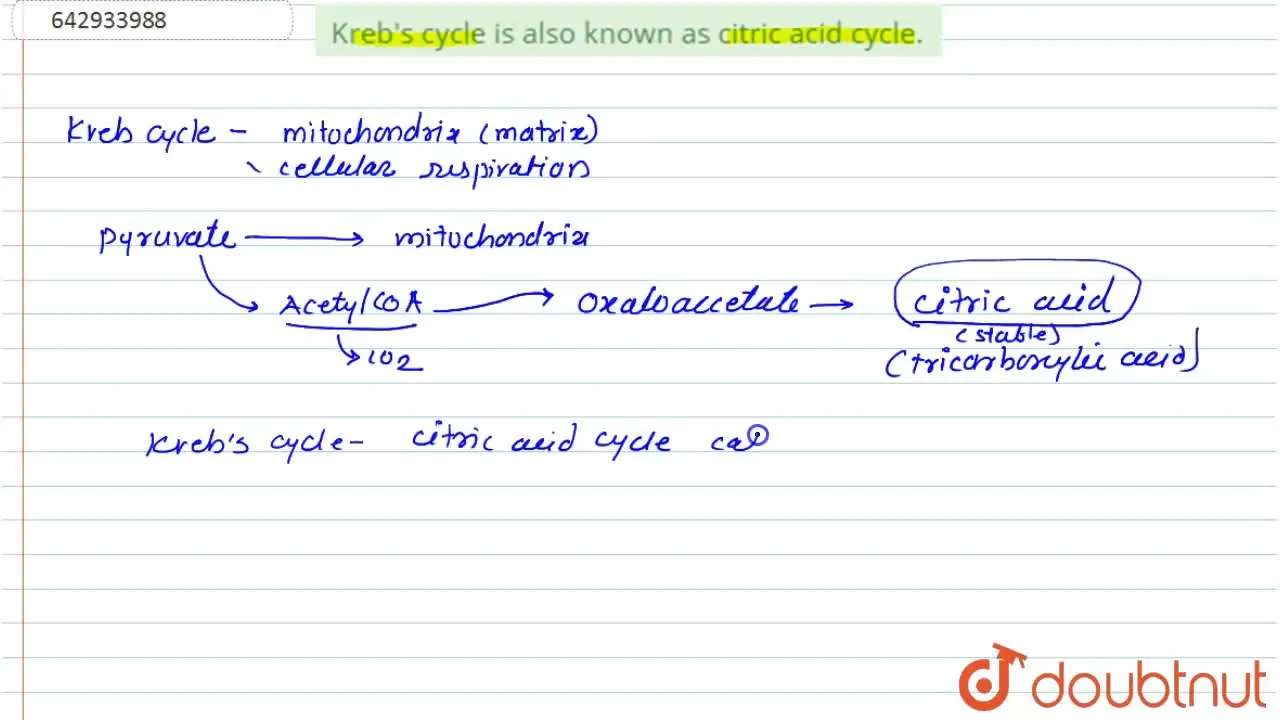 642933988
Kreb's cycle is also known as citric acid cycle.
Kreb cycle - mitochondria (matrix)
cellular respiration
pyruvate → mitochondria
Acetyl COA → Oxaloaccetate → citric acid
(stable)
CO2
(tricarboxylic acid)
Kreb's cycle - citric acid cycle cal
doubtnut